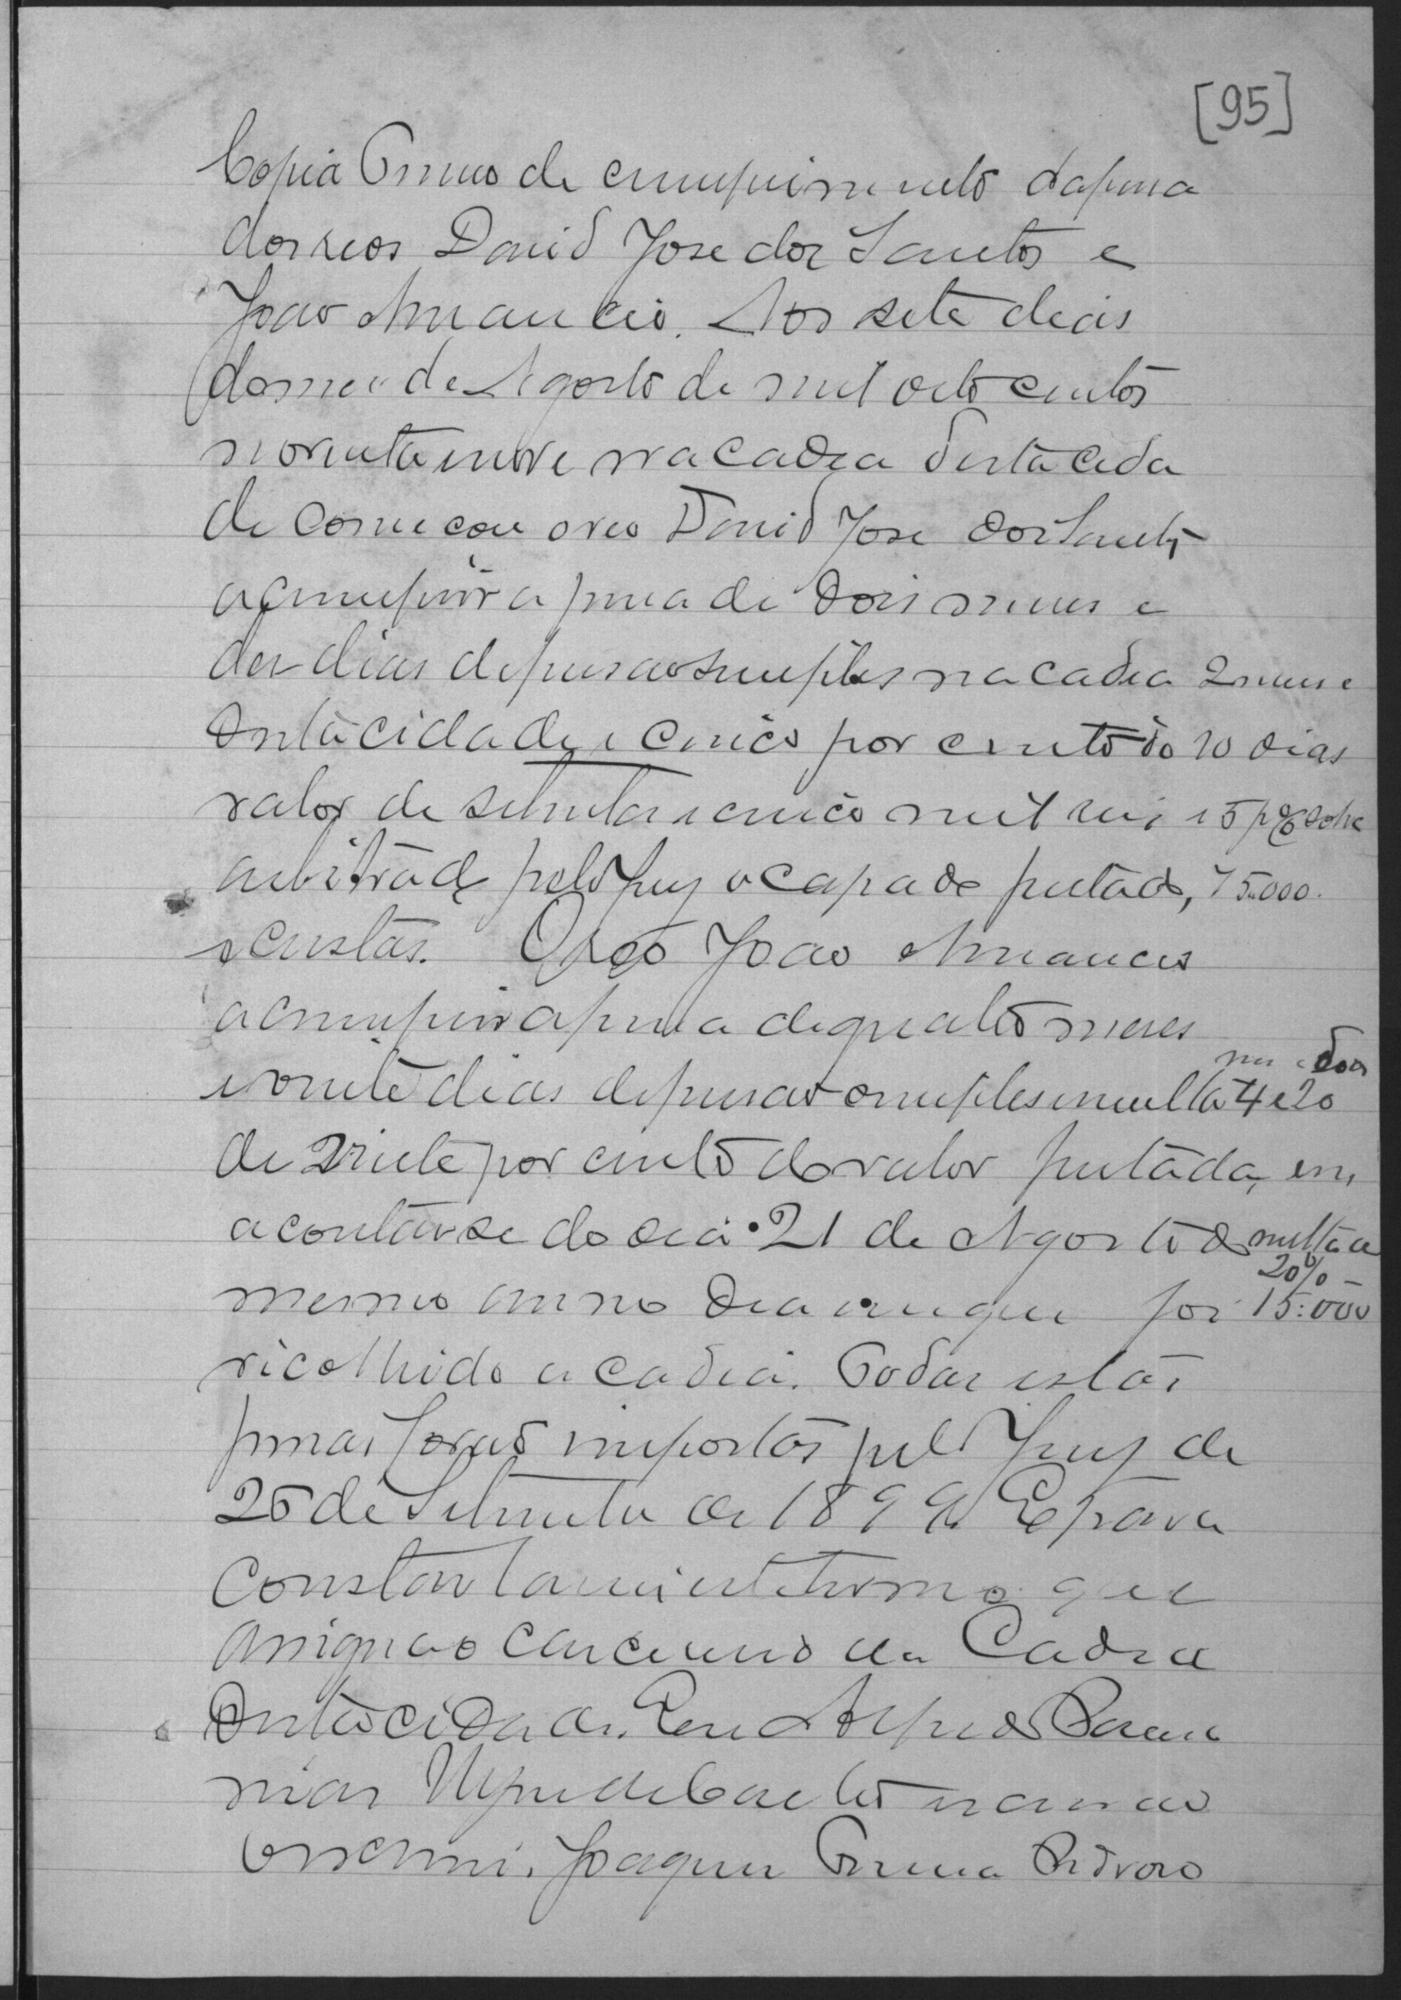 [95]
Copia Termo de cumprimento da pena
dos reos David Jose dos Santos e
Joao Amancio. Aos sete dias
do mes de Agosto de mil oito centos
noventa e nove na cadea desta cida
de começou o reo David Jose dos Santos
a cumprir a pena de dois meses e
dez dias de prisao simples na cadea 2 meses e
desta cidade e cinco por cento do 10 dias
valor de setenta e cinco mil reis e 5 p% sobre
arbitrado pelo Juy a capado furtado, 75.000.
e custas. O reo Joao Amancio
a cumprir a pena de quatro meses
e vinte dias de prisao simples e multa 4 e 20
de vinte por cento do valor furtado, em
a contar se do dia 21 de Agosto do multa a
20% -
mesmo anno dia em que foi 15:000
ricolhido a cadea. Todas estas
penas forao impostas pelo Jury de
25 de Setembro de 1899. E para
constar lavrei este termo que
assigna o carcereiro da Cadea
desta cidade. Eu Alfredo
nao
escrevi. Joaquim